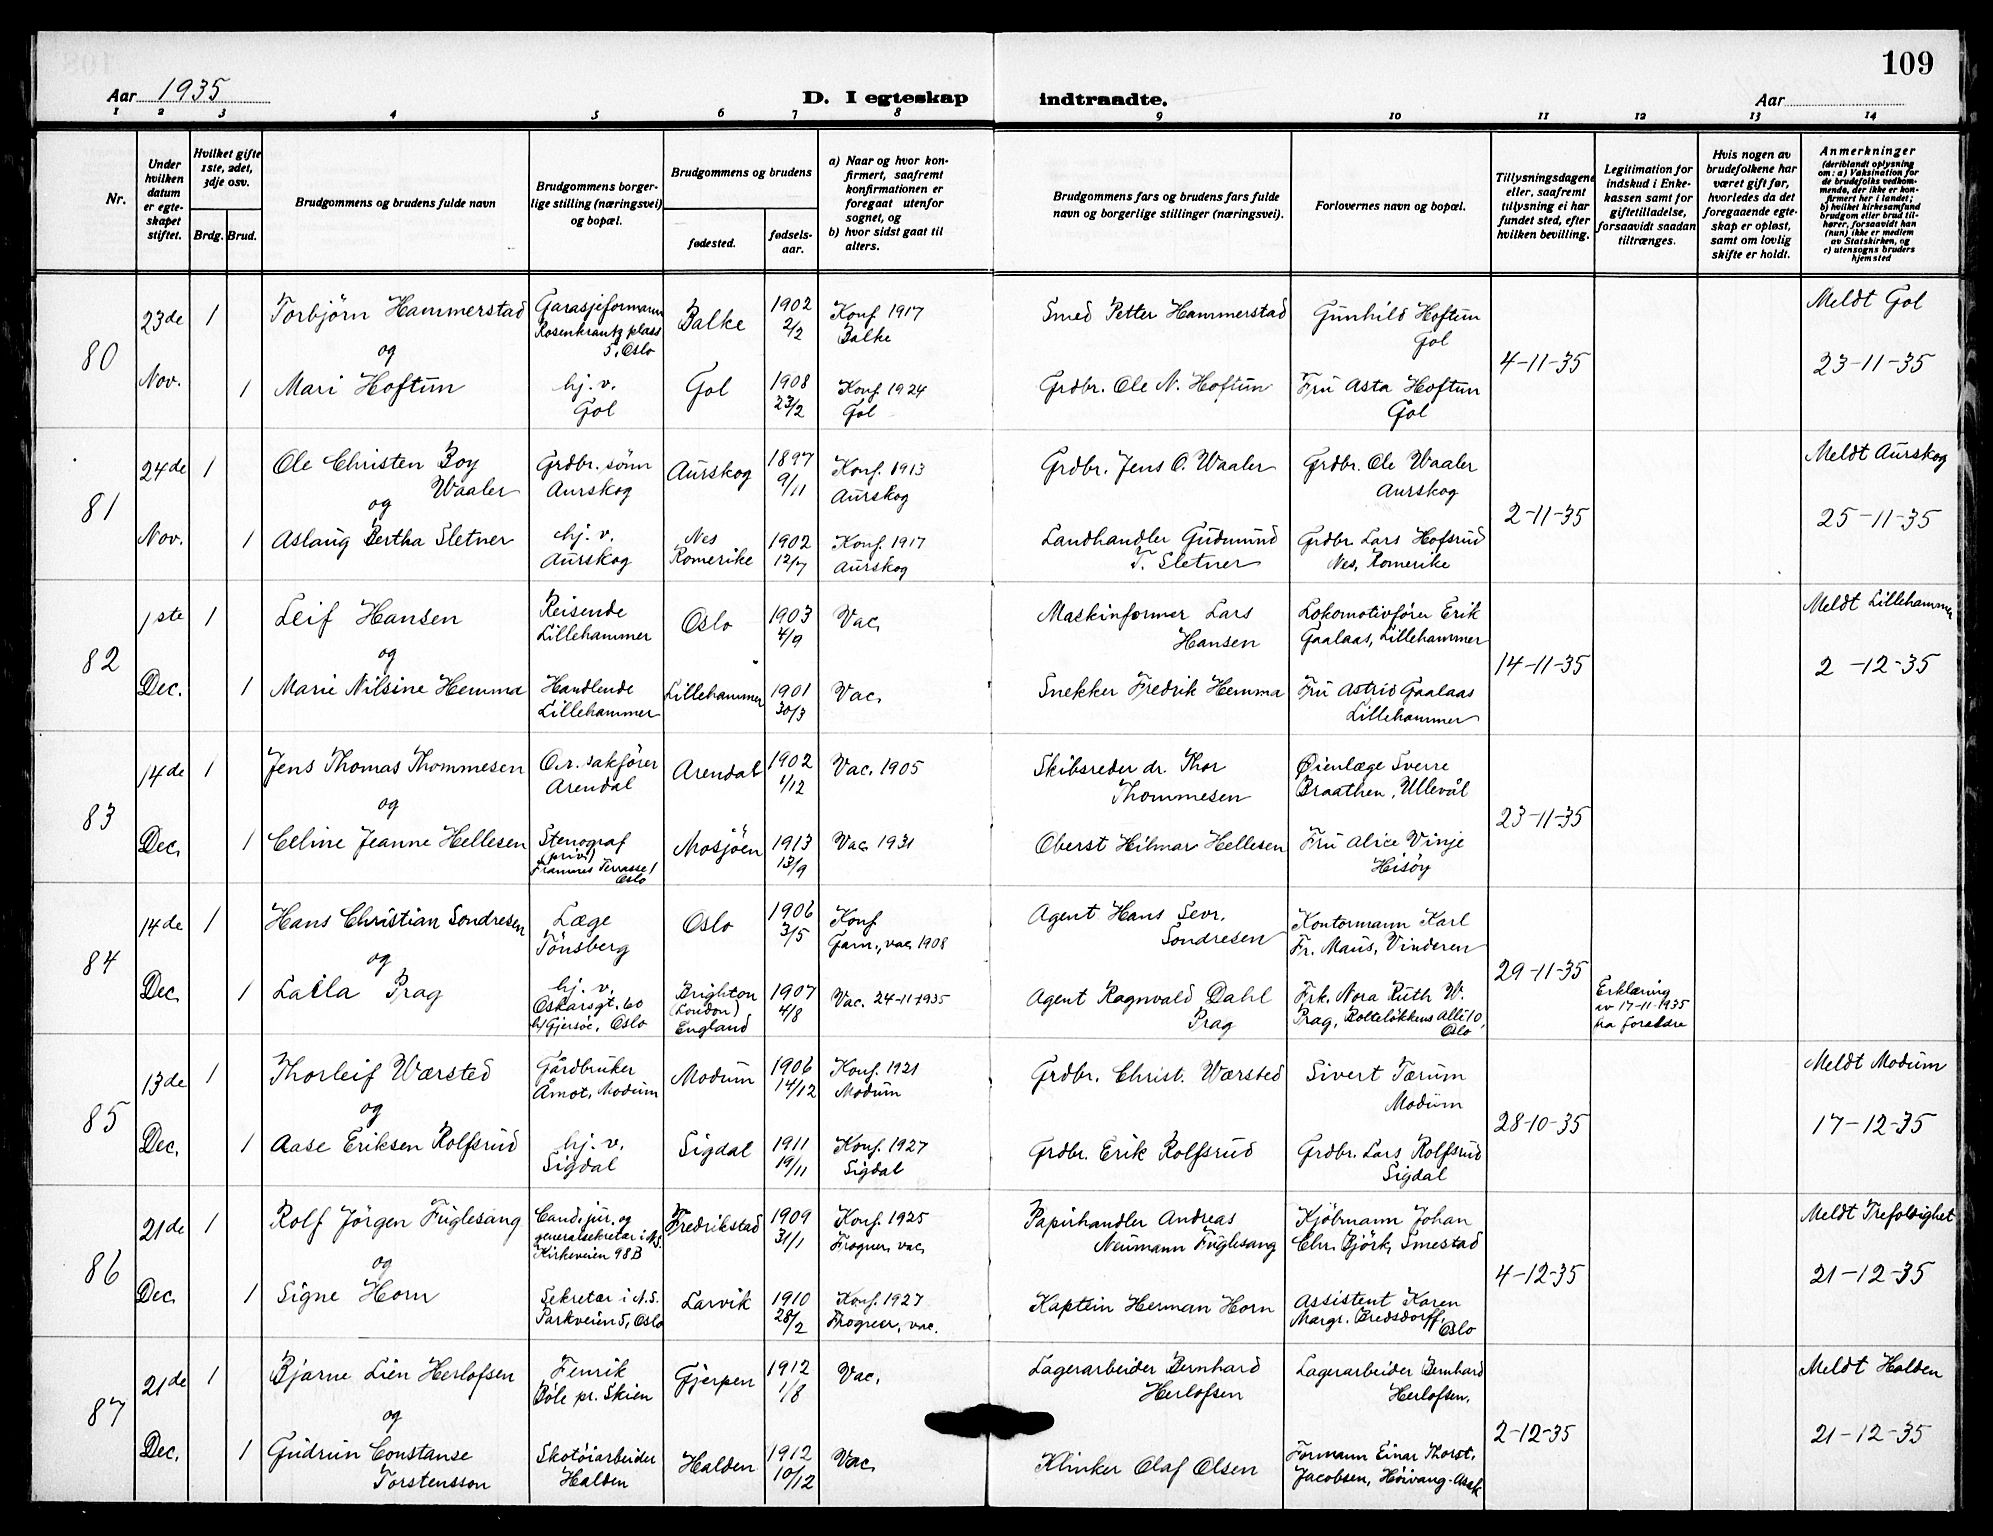 109
Aar 1935
D. I egteskap indtraadte.
Aar
1 2 3 4 5 6 7 8 9 10 11 12 13 14
Nr.
Under hvilken datum er egteskapet stiftet.
Hvilket gifte 1ste, 2det, 3dje osv.
Brdg. Brud.
Brudgommens og brudens fulde navn
Brudgommens borgerlige stilling (næringsvei) og bopæl.
Brudgommens og brudens
fødested.
fødselsaar.
a) Naar og hvor konfirmert, saafremt konfirmationen er foregaat utenfor sognet, og
b) hvor sidst gaat til alters.
Brudgommens fars og brudens fars fulde navn og borgerlige stillinger (næringsvei).
Forlovernes navn og bopæl.
Tillysningsdagene eller, saafremt tillysning ei har fundet sted, efter hvilken bevilling.
Legitimation for indskud i Enkekassen samt for giftetilladelse, forsaavidt saadan tiltrænges.
Hvis nogen av brudefolkene har været gift før, hvorledes da det foregaaende egteskap er opløst, samt om lovlig skifte er holdt.
Anmerkninger
(deriblandt oplysning om: a) Vaksination for de brudefolks vedkommende, der ikke er konfirmert her i landet; b) hvilket kirkesamfund brudgom eller brud tilhører, forsaavidt han (hun) ikke er medlem av Statskirken, og c) utensogns bruders hjemsted
80
23de 1 Torbjörn Hammerstad Garasjeformann Rosenkrantz plass 5, Oslo Balke 1902 2/2 Konf 1917 Balke Smed Petter Hammerstad Gunhild Hoftun Gol 4-11-35 Meldt Gol 23-11-35
og
Nov. 1 Mari Hoftun hj. v. Gol Gol 1908 23/2 Konf 1924 Gol Grdbr. Ole N. Hoftun Fru Asta Hoftun Gol
81
24de 1 Ole Christen Boy Waaler Grdbr. sönn Aurskog Aurskog 1897 9/11 Konf. 1913 Aurskog Grdbr. Jens O. Waaler Grdbr. Ole Waaler Aurskog 2-11-35 Meldt Aurskog 25-11-35
og
Nov. 1 Aslaug Bertha Sletner hj. v. Aurskog Nes Romerike 1902 12/7 Konf. 1917 Aurskog Landhandler Gudmund T. Sletner Grdbr. Lars Hofsrud Nes, Romerike
82
1ste 1 Leif Hansen Reisende Lillehammer Oslo 1903 4/9 Vac. Maskinformer Lars Hansen Lokomotivförer Erik Gaalaas, Lillehammer 14-11-35 Meldt Lillehammer 2-12-35
og
Dec. 1 Marie Nilsine Hemma Handlende Lillehammer Lillehammer 1901 30/3 Vac. Snekker Fredrik Hemma Fru Astrid Gaalaas Lillehammer
83
14de 1 Jens Thomas Thommesen O.r. sakförer Arendal Arendal 1902 1/12 Vac. 1905 Skibsreder dr. Thor Thommesen Øienlæge Sverre Braathen, Ullevål 23-11-35
og
Dec. 1 Celine Jeanne Hellesen Stenograf (priv.) Framnes Terrasse 1 Oslo Mosjöen 1913 13/9 Vac. 1931 Oberst Hilmar Hellesen Fru Alice Vinje Hisöy
84
14de 1 Hans Christian Sondresen Læge Tönsberg Oslo 1906 3/5 Konf Garn., vac. 1908 Agent Hans Sevr. Sondresen Kontormann Karl Fr. Maus, Vinderen 29-11-35
og
Dec. 1 Laila Prag hj. v. Oskarsgt. 60 b/Gjersöe, Oslo Brighton (London) England 1907 4/8 Vac. 24-11-1935 Agent Ragnvald Dahl Prag Frk. Nora Ruth W. Prag, Bolteløkkens Allé 10, Oslo Erklæring av 17-11-1935 fra foreldre
85
13de 1 Thorleif Wærsted Gårdbruker Åmot, Modum Modum 1906 14/12 Konf. 1921 Modum Grdbr. Christ. Wærsted Sivert Tærum Modum 28-10-35 Meldt Modum 17-12-35
og
Dec. 1 Aase Eriksen Rolfsrud hj. v. Sigdal Sigdal 1911 19/11 Konf. 1927 Sigdal Grdbr. Erik Rolfsrud Grdbr. Lars Rolfsrud Sigdal
86
21de 1 Rolf Jörgen Fuglesang Cand. jur. og generalsekretær i N.S. Kirkeveien 98B Fredrikstad 1909 31/1 Konf. 1925 Frogner, vac. Papirhandler Andreas Neumann Fuglesang Kjöbmann Johan Chr. Björk, Smestad 4-12-35 Meldt Trefoldighet 21-12-35
og
Dec. 1 Signe Horn Sekretær i N.S. Parkveien 5, Oslo Larvik 1910 28/2 Konf. 1927 Frogner, vac. Kaptein Herman Horn Assistent Karen Margr. Bredsdorff, Oslo
87
21de 1 Bjarne Lien Herlofsen Fenrik Böle pr. Skien Gjerpen 1912 1/8 Vac. Lagerarbeider Bernhard Herlofsen Lagerarbeider Bernhard Herlofsen. 2-12-35 Meldt Halden 21-12-35
og
Dec. 1 Gudrun Constanse Torstensson Skotöiarbeider Halden Halden 1912 10/12 Vac. Klinker Olaf Olsen Formann Einar Thorst. Jacobsen, Höivang-Asak